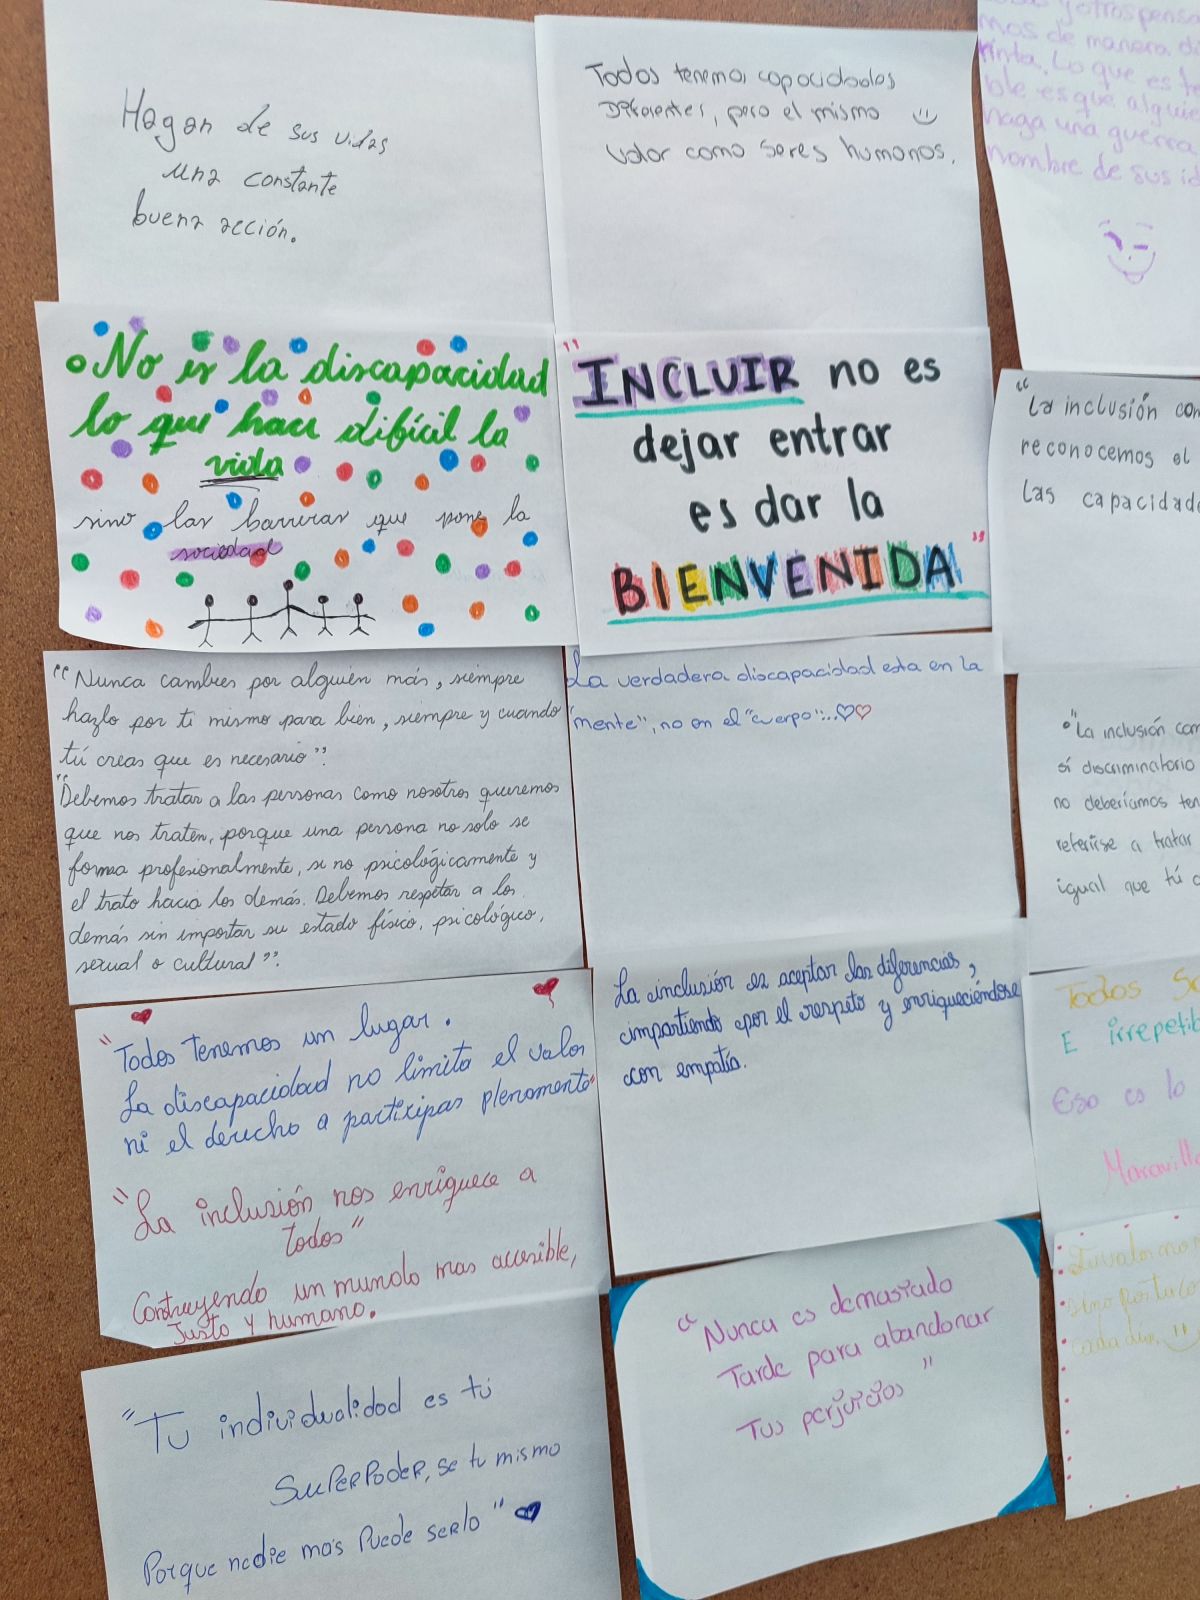 Hagan de sus vidas
una constante
buena acción.
Todos tenemos capacidades
Diferentes, pero el mismo
valor como seres humanos.
y otros pensa
mos de manera di
tinta. Lo que es te
ble es que alguie
haga una guerra
nombre de sus id
No es la discapacidad
lo que hace difícil la
vida
sino las barreras que pone la
sociedad
"INCLUIR no es
dejar entrar
es dar la
BIENVENIDA"
"La inclusión com
reconocemos el
las capacidade
"Nunca cambies por alguien más, siempre
hazlo por ti mismo para bien, siempre y cuando
tú creas que es necesario".
"Debemos tratar a las personas como nosotros queremos
que nos traten, porque una persona no solo se
forma profesionalmente, si no psicológicamente y
el trato hacia los demás. Debemos respetar a los
demás sin importar su estado físico, psicológico,
sexual o cultural".
La verdadera discapacidad esta en la
"mente", no en el "cuerpo"...
"La inclusión com
sí discriminatorio
no deberíamos ten
referirse a tratar
igual que tú
"Todos tenemos un lugar.
La discapacidad no limita el valor
ni el derecho a participar plenamente"
"La inclusión nos enriquece a
todos"
Contruyendo un mundo mas accesible,
Justo y humano.
La inclusión es aceptar las diferencias,
impartiendo por el respeto y enriqueciéndose
con empatía.
Todos So
E irrepetib
Eso es lo
Maravill
"Tu individualidad es tú
SuPERPoDER, se tu mismo
Porque nadie más Puede serlo"
"Nunca es demasiado
Tarde para abandonar
Tus perjuicios"
Tu valor no
sino por tu
cada día.